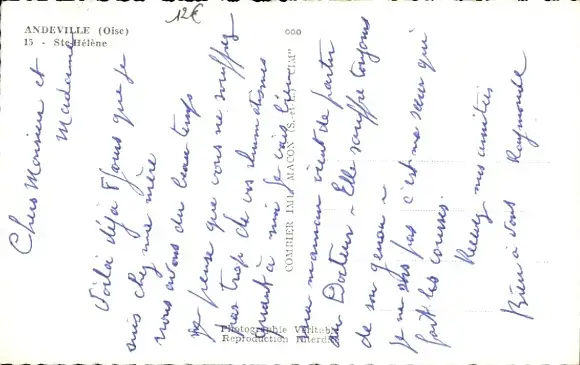 12€
ANDEVILLE (Oise)
15 - Ste-Hélène
COMBIER IMP. MACON (S.-et-L.) "CIM"
Photographie Véritable
Reproduction Interdite
Chers Monsieur et
Madame
Voilà déjà 8 jours que je
suis chez ma mère
nous avons du beau temps
je pense que vous ne souffrez
pas trop de vos rhumatismes
quant à moi je vais bien
ma maman vient de partir
au Docteur - Elle souffre toujours
de son genou -
je ne sors pas c'est ma sœur qui
fait les courses.
Recevez mes amitiés
Bien à vous Raymonde